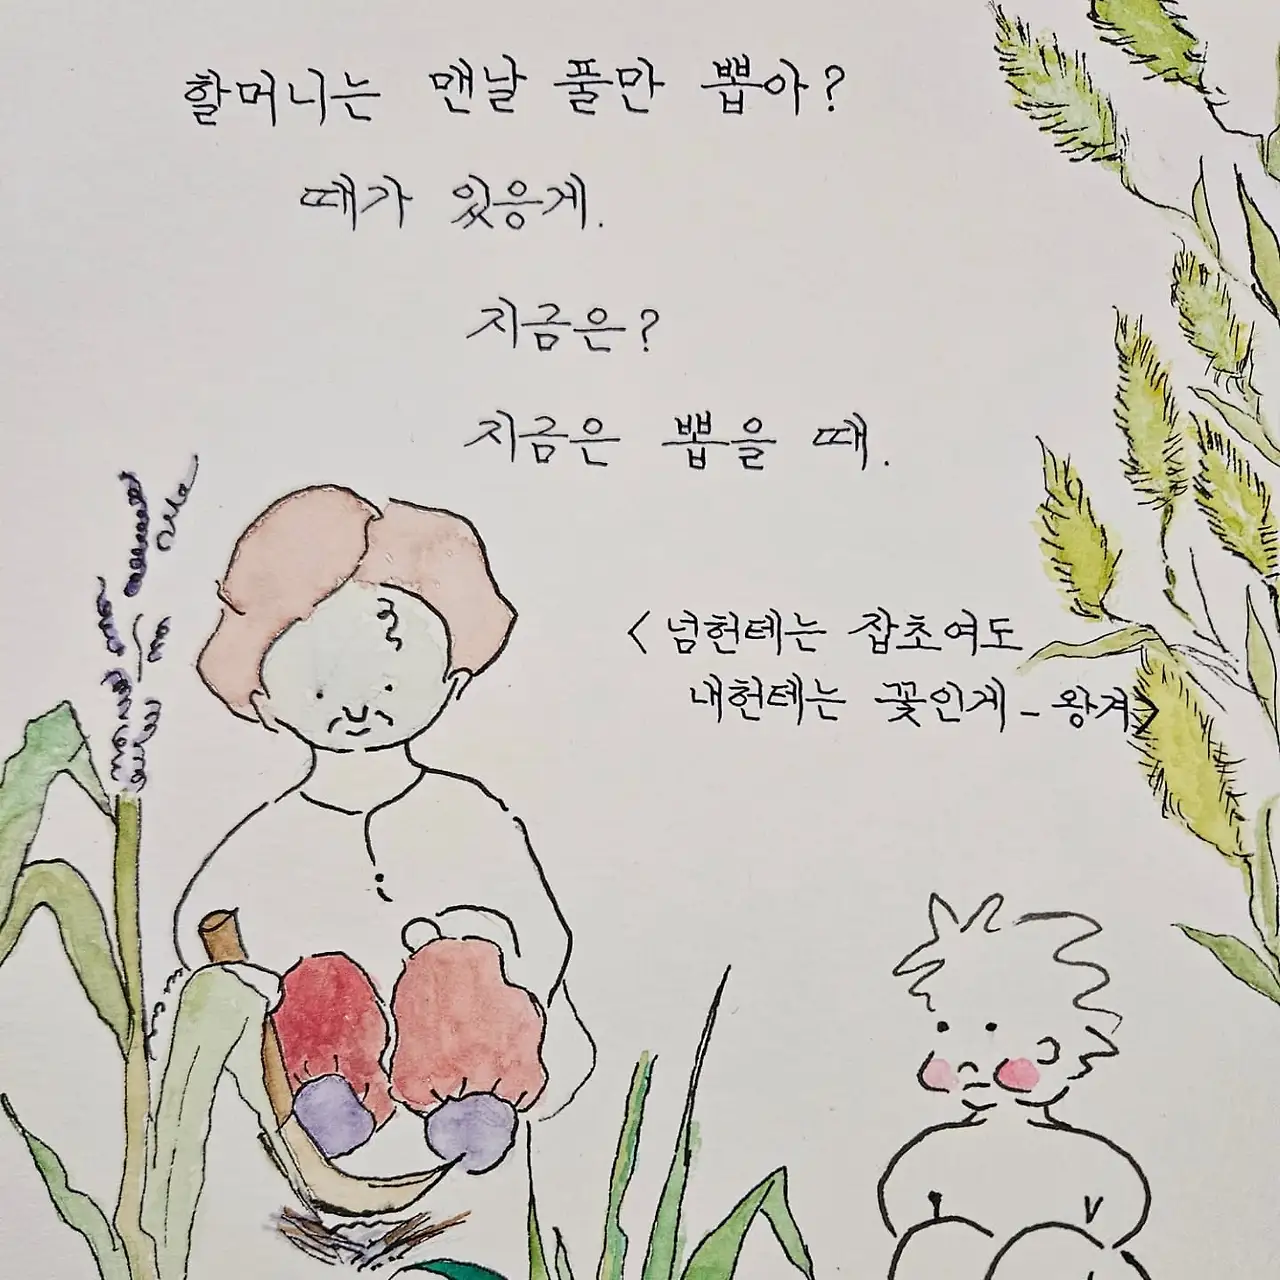 할머니는 맨날 풀만 뽑아?
때가 있응게.
지금은?
지금은 뽑을 때.
<넘헌테는 잡초여도
내헌테는 꽃인게-왕겨>